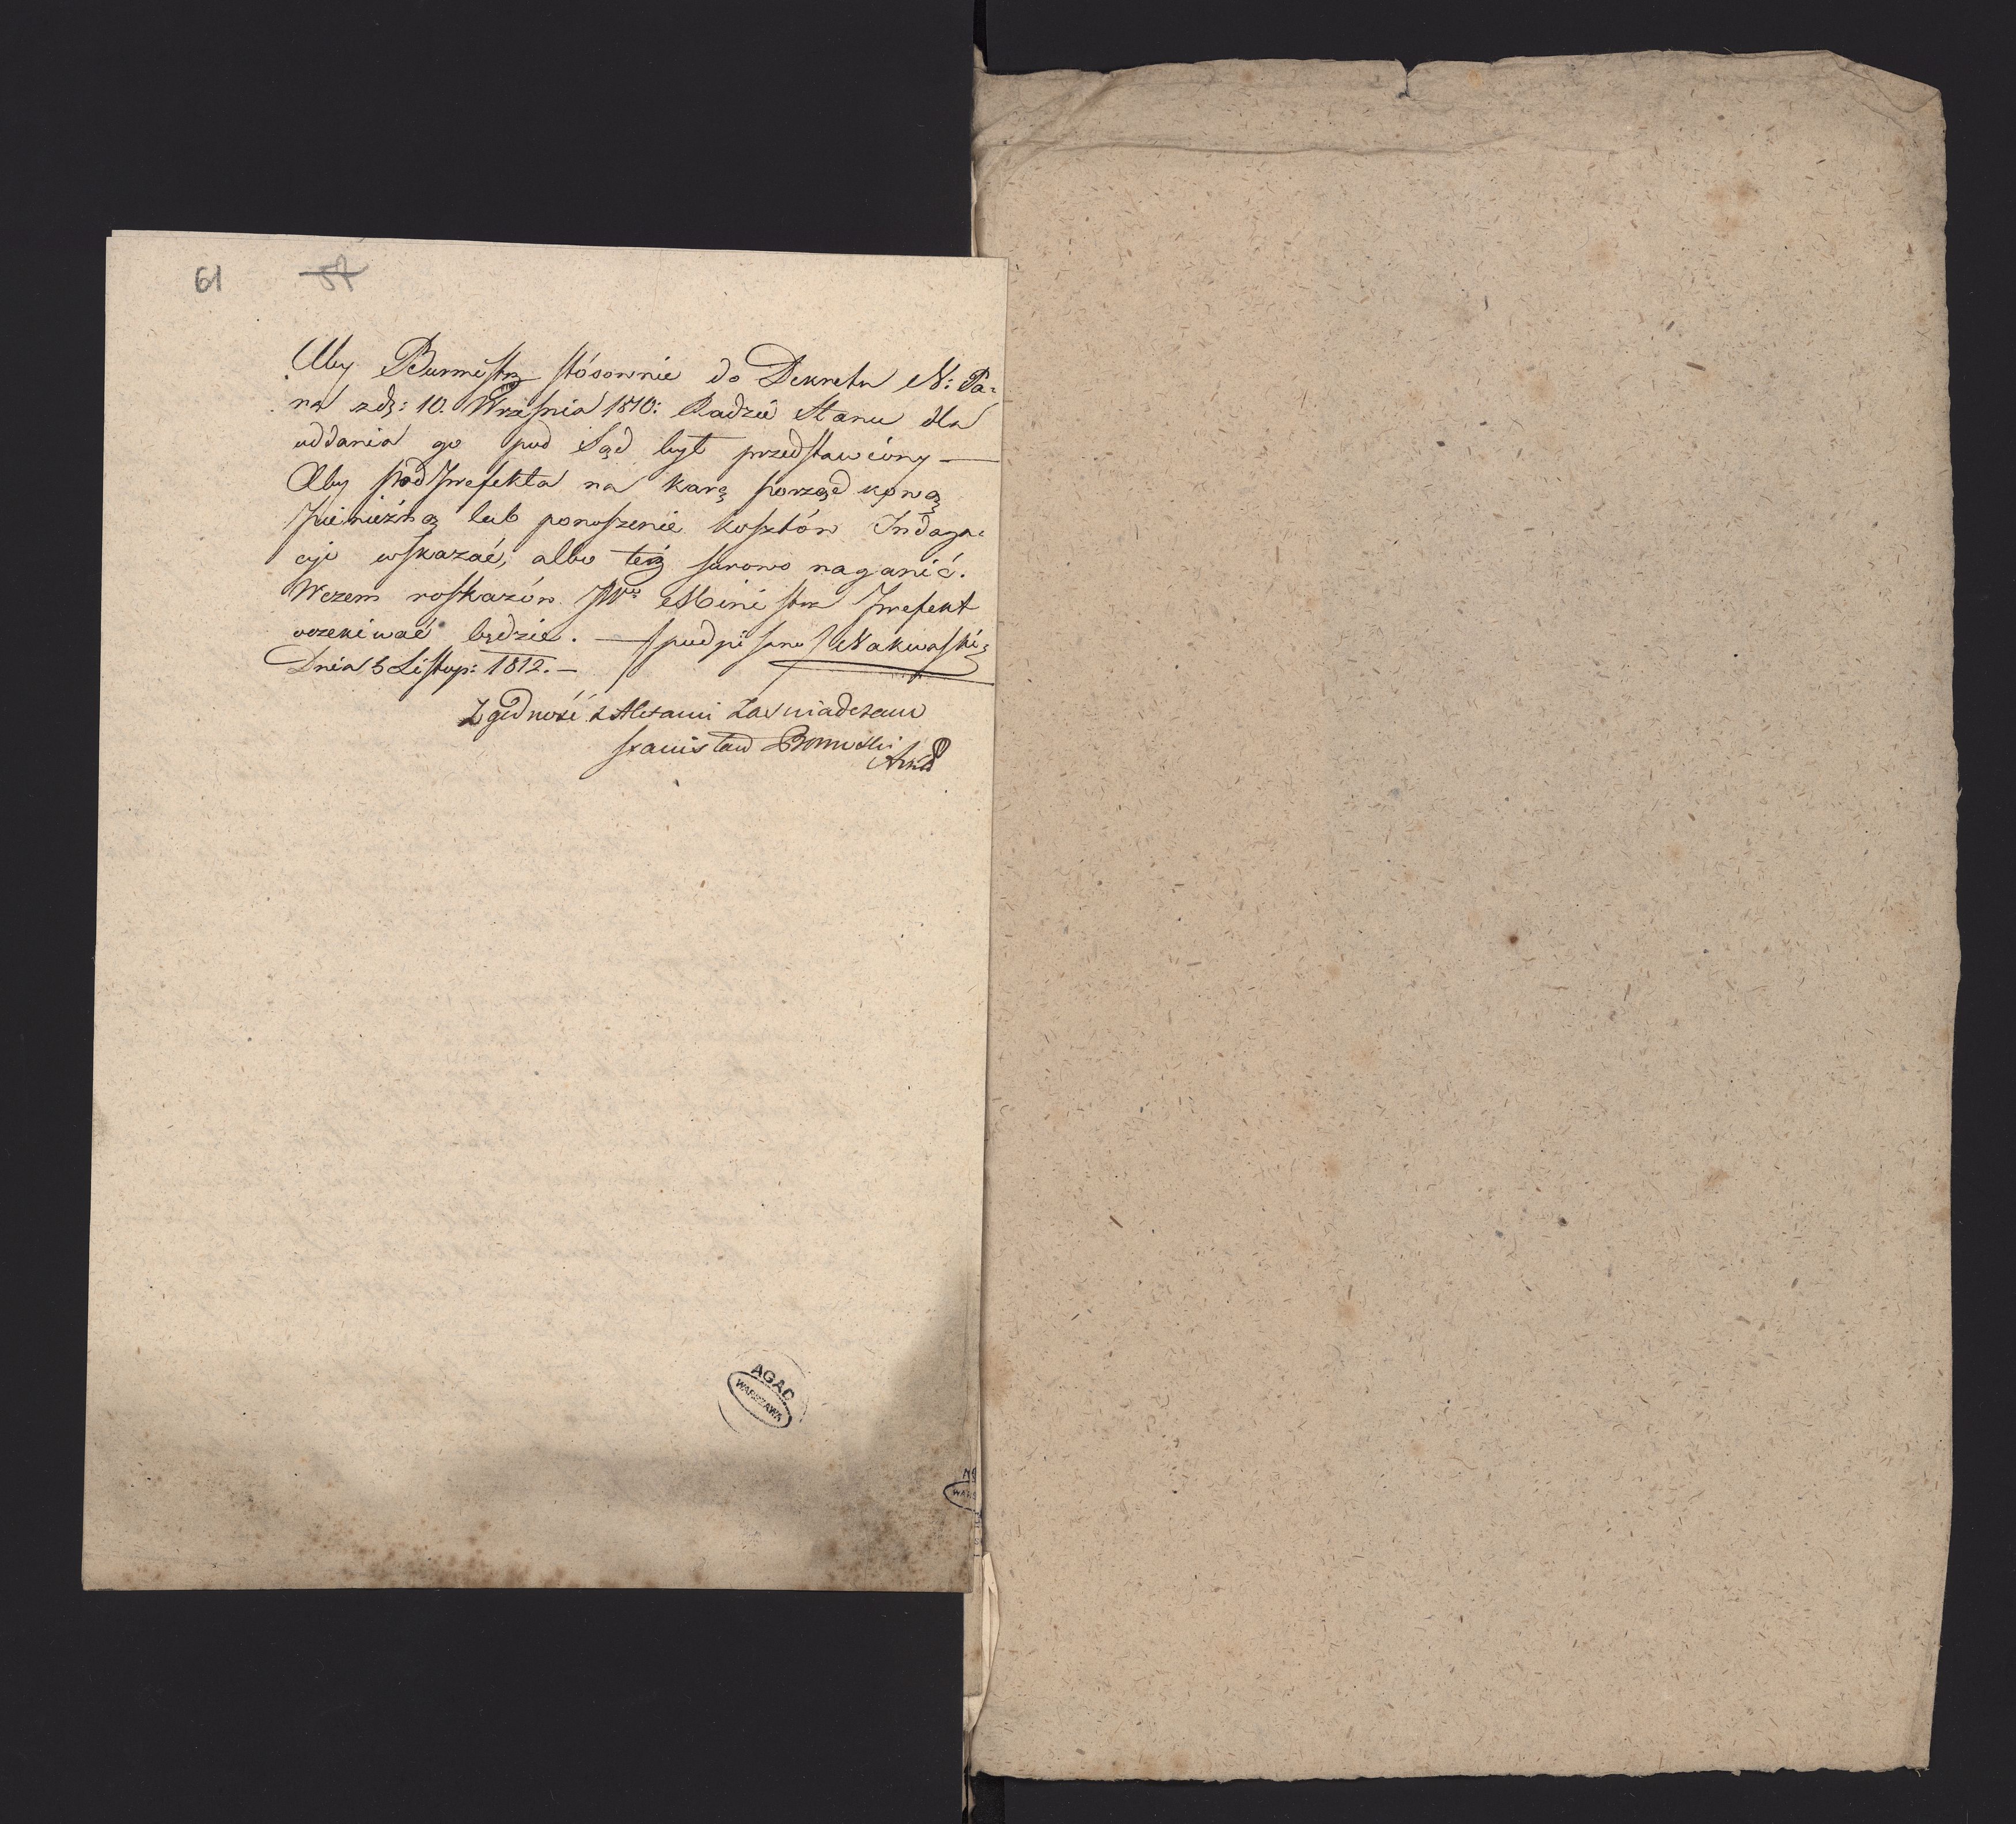 61 57
Aby Burmistrz stósownie do Dekretu N: Pa=
na z d: 10. Września 1810: Radzie Stanu dla
oddania go pod Sąd był przedstawiony —
Aby podprefekta na karę porządkową
pieniężną lub ponoszenie kosztów Indaga=
cyi wskazać, albo też surowo naganić.
W czem roskazów JWo Ministra Prefekt
oczekiwać będzie. — podpisano Nakwaski
Dnia 5 Listop: 1812. —
Zgodność z Aktami Zaświadczam
Stanisław
AGAD
WARSZAWA